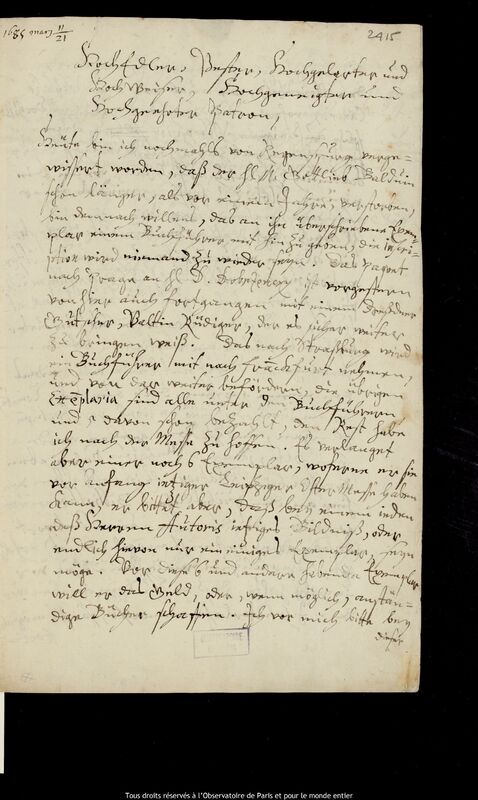 1685 martz 11/21
2415
HochEdler, Vester, Hochgelarter und
HochWeiser, Hochgeneigter und
Hochgeehrter Patron,
Heüte bin ich nochmahls von Regenspurg verge-
wissert worden, daß der H. M. Gottlieb Balduin
schon länger, als vor einem Jahre, verstorben,
bin demnach willens, das an ihn überschriebene Exem-
plar einem Buchführer mit hin zu geben, die inscri-
ption wird niemand zu wieder seyn. Das Paquet
nach Praga an H. D. Dobrzensky ist vorgestern
von hier auch fortgangen mit einem Dreßdner
Kutscher, Valtin Rüdiger, der es sicher weiter
zu bringen weiß. Das nach Straßburg wird
ein Buchführer mit nach Franckfurt nehmen,
und von dar weiter befördern, die übrigen
Exemplaria sind alle unter den Buchführern
und davon schon bezahlt, den Rest habe
ich nach der Messe zu hoffen. Es verlanget
aber einer noch 6 Exemplar, woferne er sie
vor anfang ietziger Leipziger OsterMesse haben
kann, er bittet aber, daß bey einem ieden
deß Herren Autoris Bildniß, oder
endlich hievon nur ein einziges Exemplar, seyn
möge. Vor diese 6 und andere habende Exemplar
will er das Geld, oder, wenn möglich, anstän-
dige Bücher schaffen. Ich vor mich bitte bey
dieser
Tous droits réservés à l'Observatoire de Paris et pour le monde entier